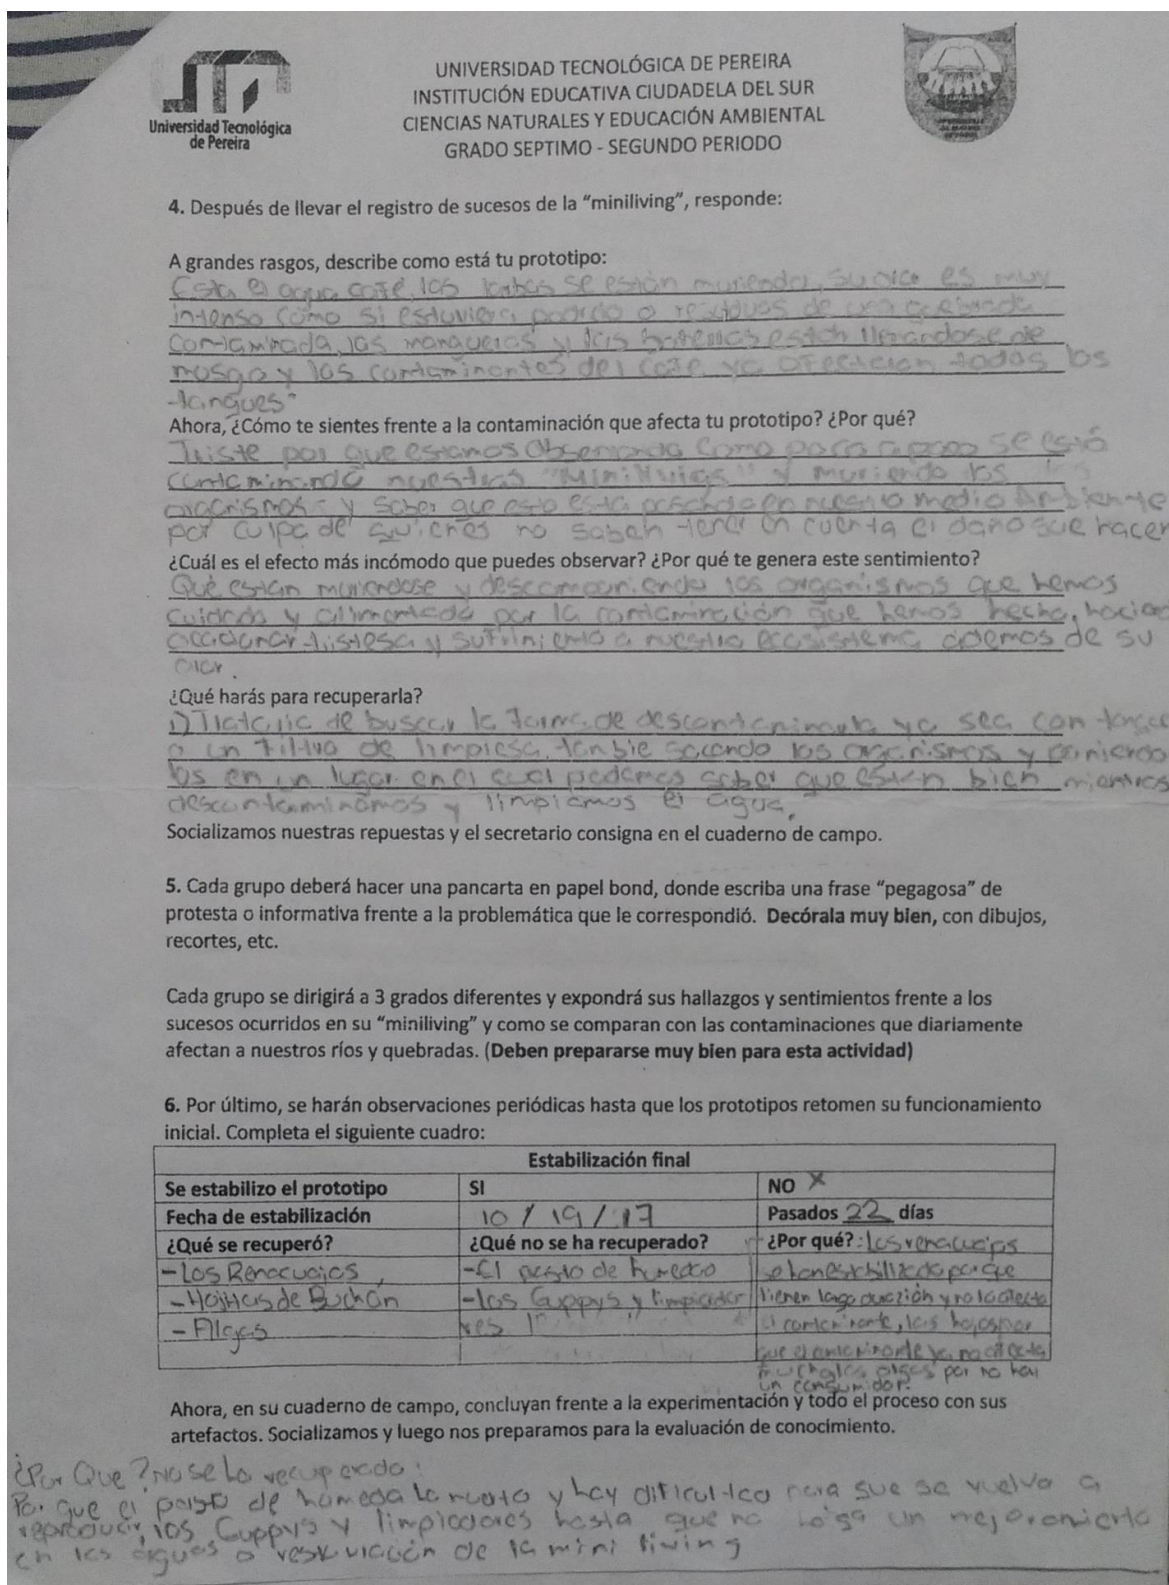 Universidad Tecnológica
de Pereira
UNIVERSIDAD TECNOLÓGICA DE PEREIRA
INSTITUCIÓN EDUCATIVA CIUDADELA DEL SUR
CIENCIAS NATURALES Y EDUCACIÓN AMBIENTAL
GRADO SEPTIMO - SEGUNDO PERIODO
4. Después de llevar el registro de sucesos de la “miniliving”, responde:
A grandes rasgos, describe como está tu prototipo:
Esta el agua café, las se están muriendo, su olor es muy
intenso como si estuviera podrido o residuos de una quebrada
contaminada, las mangueras y las botellas estan llenandose de
musgo y los contaminantes del café ya afectaron todos los
tanques"
Ahora, ¿Cómo te sientes frente a la contaminación que afecta tu prototipo? ¿Por qué?
Triste por que estamos observando como poco a poco se está
contaminando nuestras y muriendo los
organismos y saber que esto está pasando en nuestro medio Ambiente
por culpa de quienes no saben tener en cuenta el daño que hacen
¿Cuál es el efecto más incómodo que puedes observar? ¿Por qué te genera este sentimiento?
Que están muriendose y los organismos que hemos
cuidado y alimentado por la contaminación que hemos hecho,
tristesa y sufrimiento a nuestro ecosistema de su
olor.
¿Qué harás para recuperarla?
1) Trataria de buscar la forma de ya sea con
o un filtro de limpiesa, tanbie sacando los organismos y poniendo
los en un lugar en el cual podamos saber que estén bien mientras
descontaminamos y limpiamos el agua.
Socializamos nuestras repuestas y el secretario consigna en el cuaderno de campo.
5. Cada grupo deberá hacer una pancarta en papel bond, donde escriba una frase “pegagosa” de
protesta o informativa frente a la problemática que le correspondió. Decórala muy bien, con dibujos,
recortes, etc.
Cada grupo se dirigirá a 3 grados diferentes y expondrá sus hallazgos y sentimientos frente a los
sucesos ocurridos en su “miniliving” y como se comparan con las contaminaciones que diariamente
afectan a nuestros ríos y quebradas. (Deben prepararse muy bien para esta actividad)
6. Por último, se harán observaciones periódicas hasta que los prototipos retomen su funcionamiento
inicial. Completa el siguiente cuadro:
Estabilización final
Se estabilizo el prototipo SI NO X
Fecha de estabilización 10 / 19 / 17 Pasados 22 días
¿Qué se recuperó? ¿Qué no se ha recuperado? ¿Por qué?: los renacuajos
- Los Renacuajos - El pasto de humedo se han estabilizado porque
- Hojitas de Buchon - los Guppys y limpiador tienen larga duración y no lo afecta
- Algas res el contaminante, las hojas por
que el contaminante ya no afecta
mucho las algas por no hay
un consumidor.
Ahora, en su cuaderno de campo, concluyan frente a la experimentación y todo el proceso con sus
artefactos. Socializamos y luego nos preparamos para la evaluación de conocimiento.
¿Por Que? No se ha recuperado:
Por que el pasto de humeda ha muerto y hay dificultad para que se vuelva a
reproducir, los Guppys y limpiadores hasta que no haiga un mejoramiento
en las aguas o de la mini living